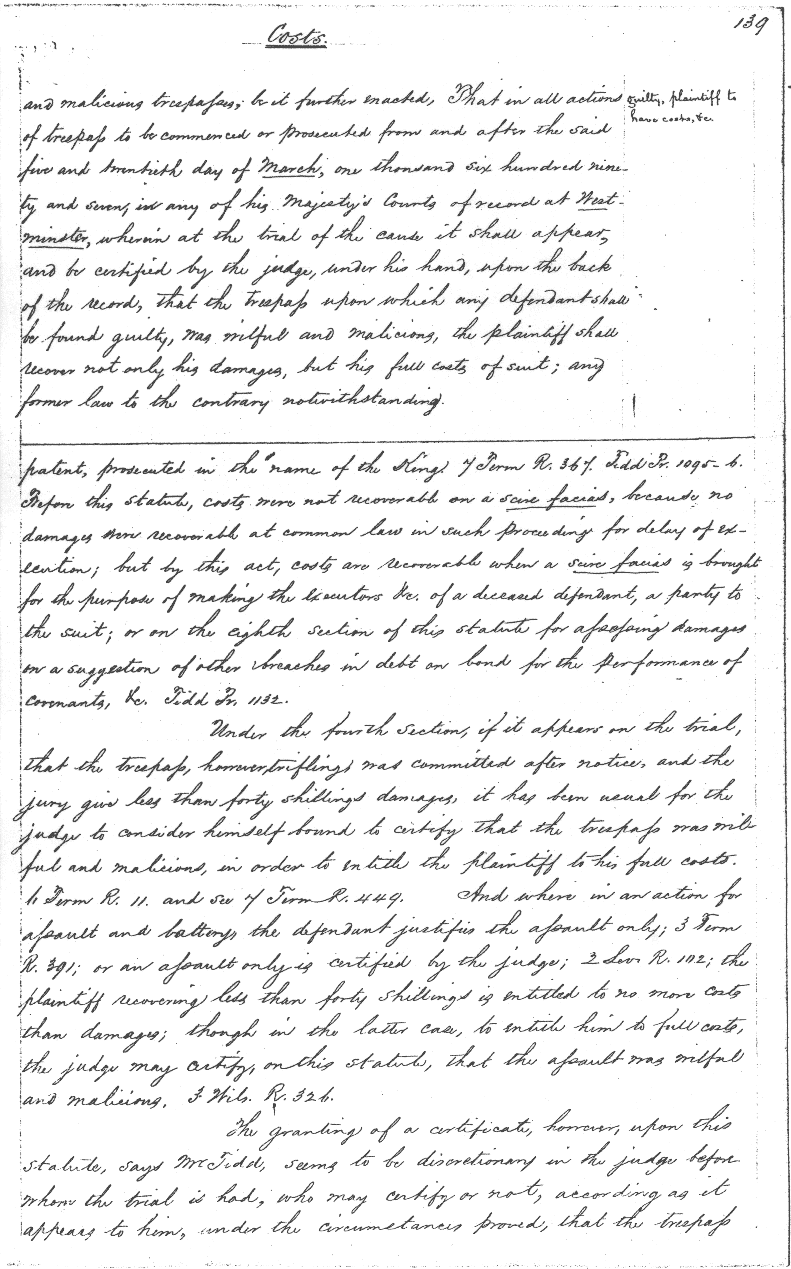 139
Costs.
and malicious trespasses; be it further enacted, That in all actions
of trespass to be commenced or prosecuted from and after the said
five and twentieth day of March, one thousand six hundred nine-
ty and seven, in any of his Majesty's Courts of record at West-
minster, wherein at the trial of the cause it shall appear,
and be certified by the judge, under his hand, upon the back
of the record, that the trespass upon which any defendant shall
be found guilty, was wilful and malicious, the plaintiff shall
recover not only his damages, but his full costs of suit; any
former law to the contrary notwithstanding.
guilty, plaintiff to
have costs, &c.
patent, prosecuted in the name of the King! 7 Term R. 367. Tidd Pr. 1095-6.
Before this statute, costs were not recoverable on a scire facias, because no
damages were recoverable at common law in such proceeding for delay of ex-
ecution; but by this act, costs are recoverable when a scire facias is brought
for the purpose of making the executors &c. of a deceased defendant, a party to
the suit; or on the eighth section of this statute for assessing damages
on a suggestion of other breaches in debt on bond for the performance of
covenants, &c. Tidd Pr. 1132.
Under the fourth section, if it appears on the trial,
that the trespass, however trifling, was committed after notice, and the
jury give less than forty shillings damages, it has been usual for the
judge to consider himself bound to certify that the trespass was wil-
ful and malicious, in order to entitle the plaintiff to his full costs.
6 Term R. 11. and see 7 Term R. 449. And where in an action for
assault and battery, the defendant justifies the assault only; 3 Term
R. 391; or an assault only is certified by the judge; 2 Lev. R. 102; the
plaintiff recovering less than forty shillings is entitled to no more costs
than damages; though in the latter case, to entitle him to full costs,
the judge may certify, on this statute, that the assault was wilful
and malicious. 3 Wils. R. 326.
The granting of a certificate, however, upon this
statute, says Mr Tidd, seems to be discretionary in the judge before
whom the trial is had, who may certify or not, according as it
appears to him, under the circumstances proved, that the trespass